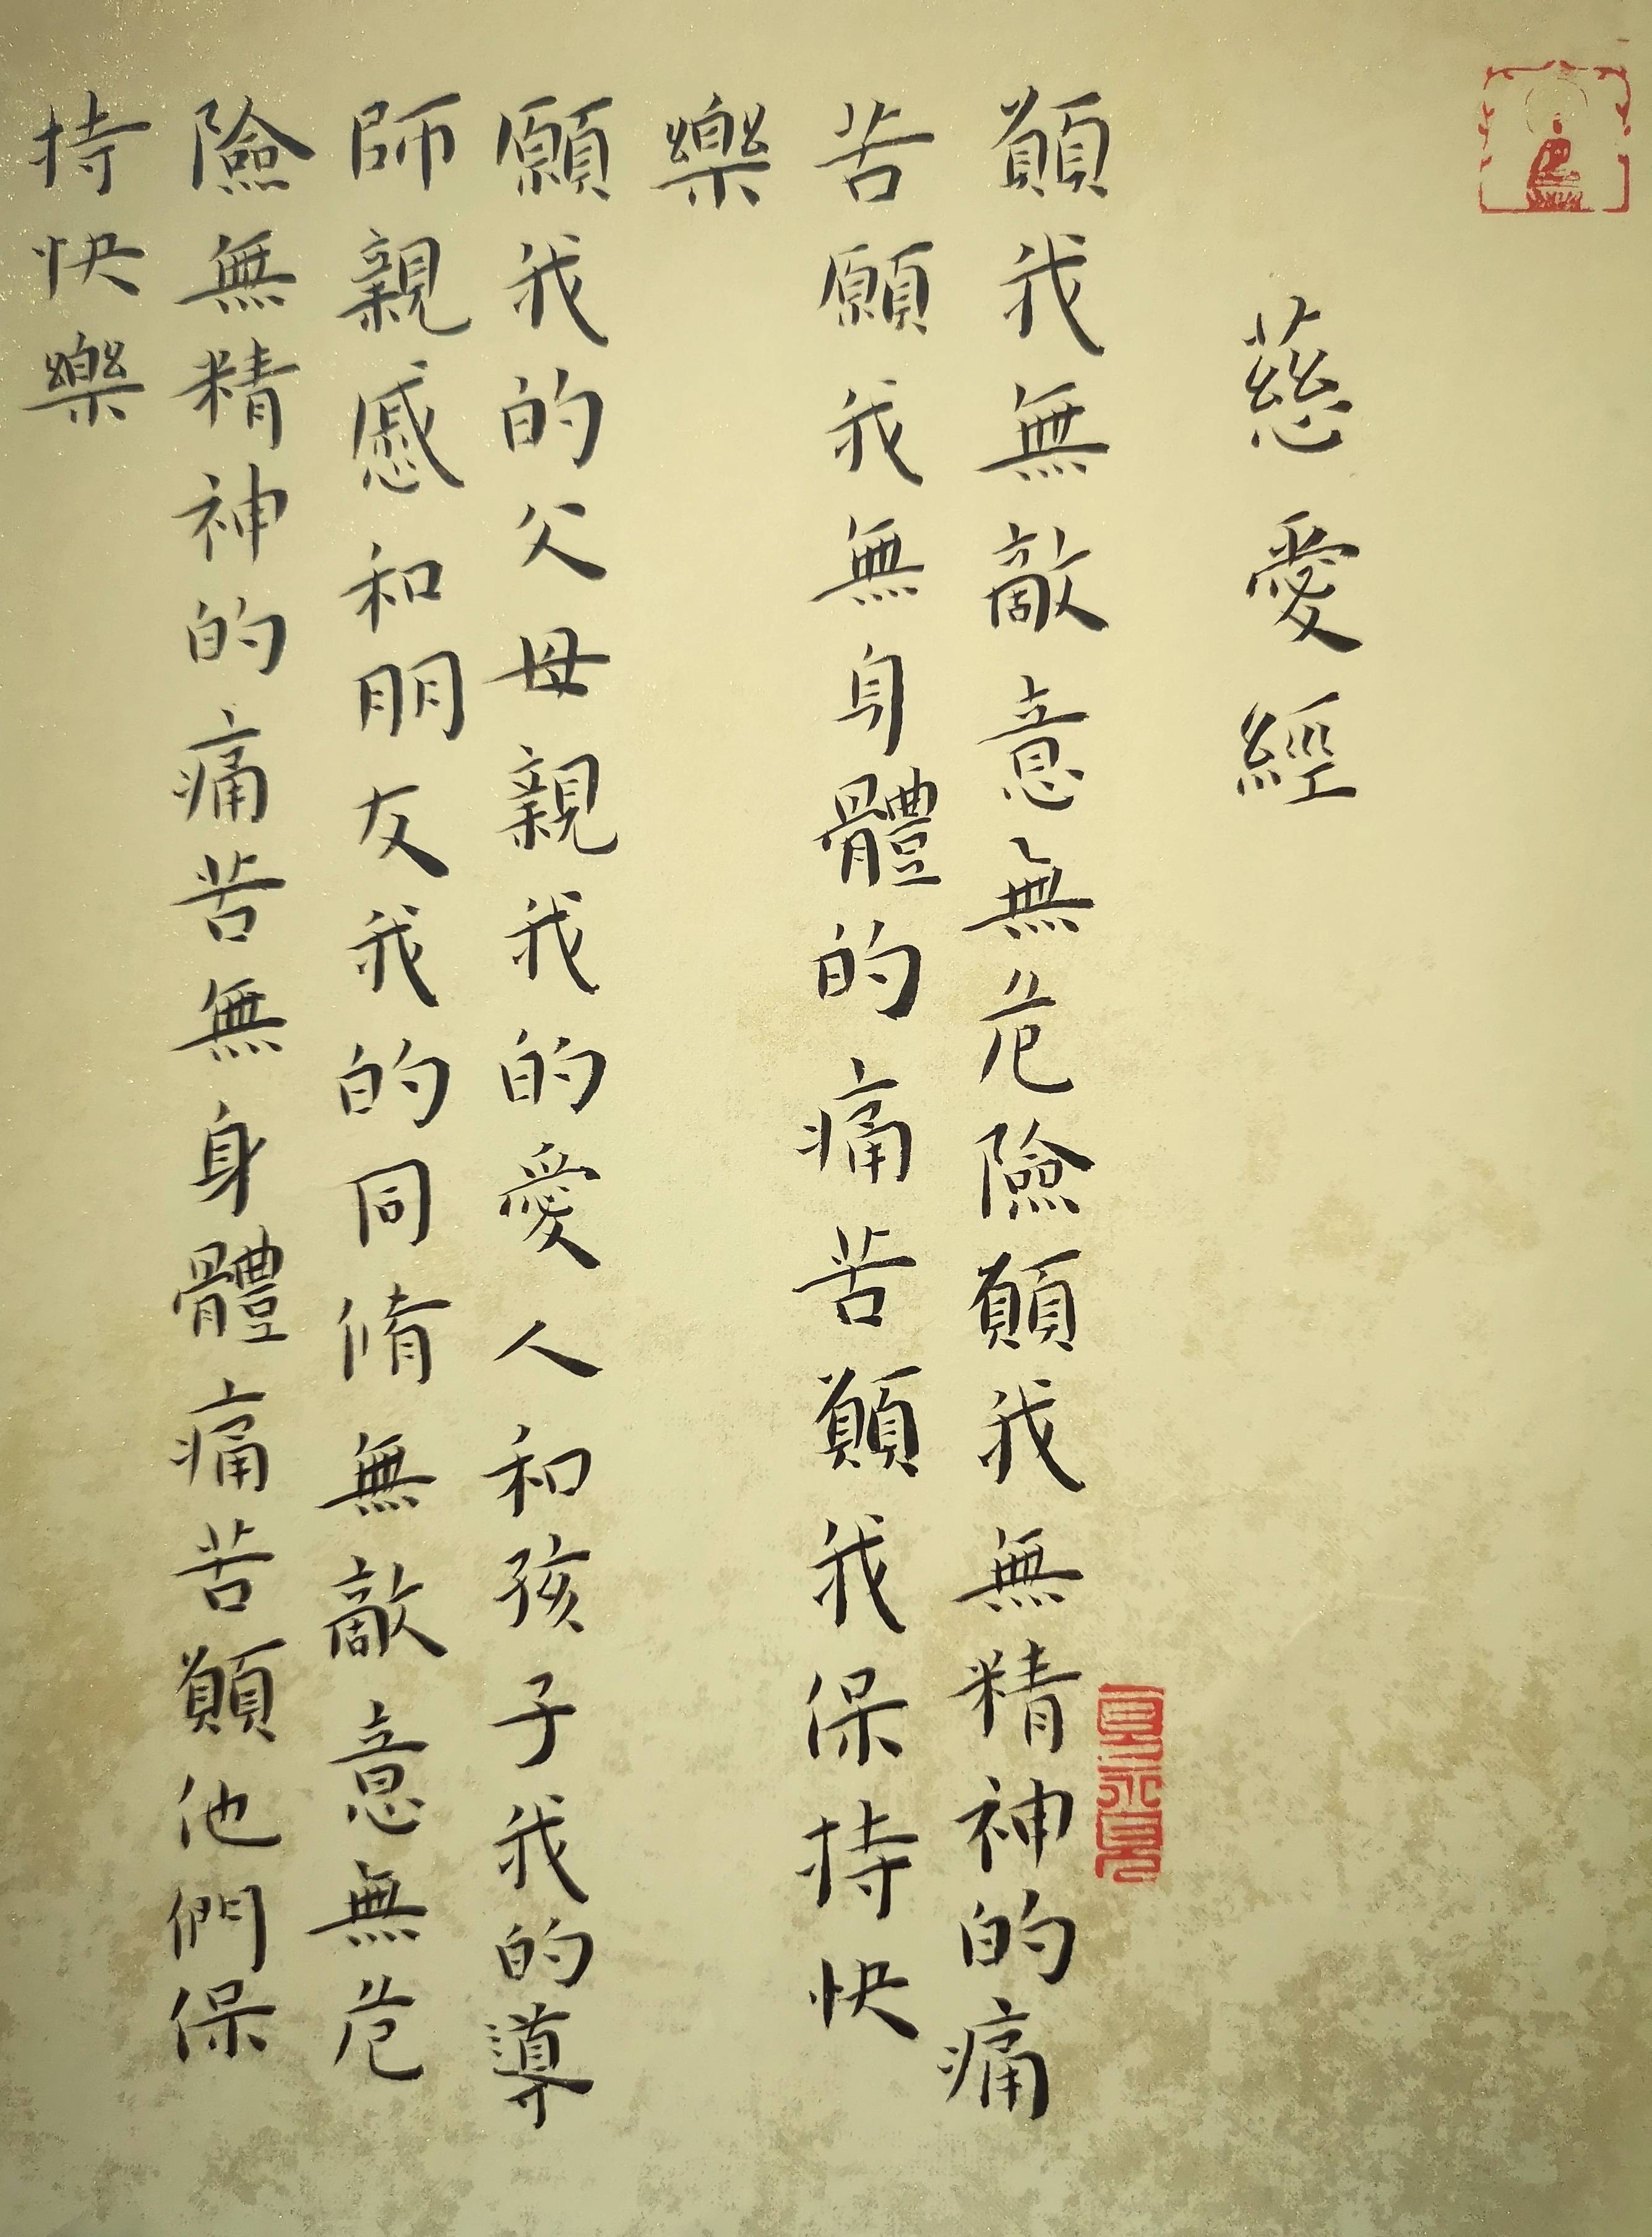 慈愛經
願我無敵意無危險願我無精神的痛
苦願我無身體的痛苦願我保持快
樂
願我的父母親我的愛人和孩子我的導
師親慼和朋友我的同脩無敵意無危
險無精神的痛苦無身體痛苦願他們保
持快樂